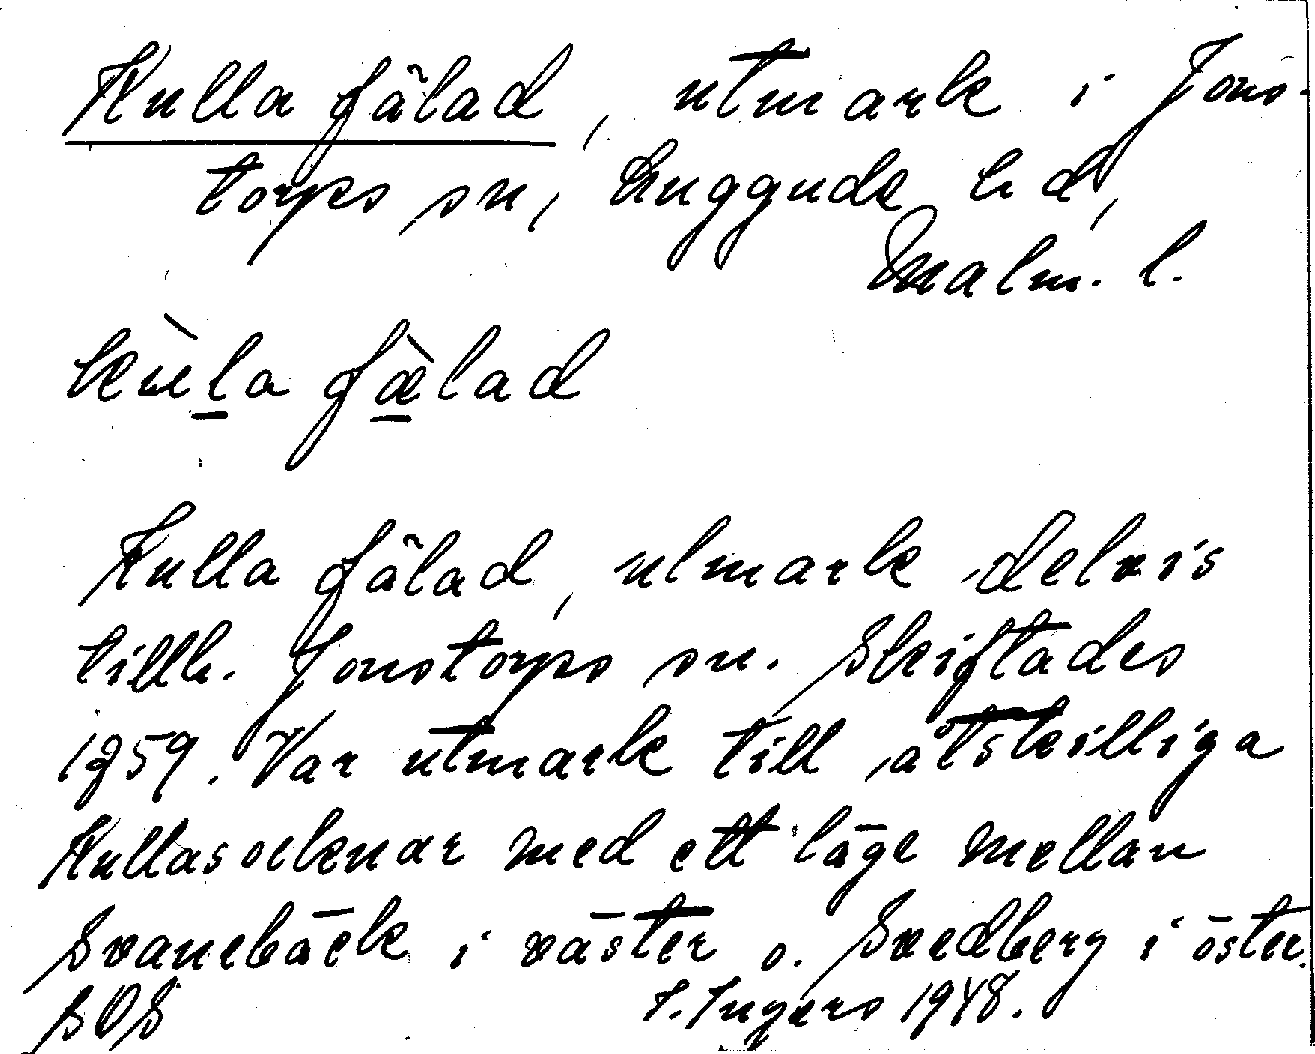 Kulla fälad, utmark i Jons-
torps sn, Luggude hd,
Malm. l.
kùla fæ̀lad
Kulla fälad, utmark delvis
tillh. Jonstorps sn. Skiftades
1859. Var utmark till åtskilliga
Kullasocknar med ett läge mellan
Svanebäck i väster o. Svedberg i öster.
SOS I. Ingers 1948.